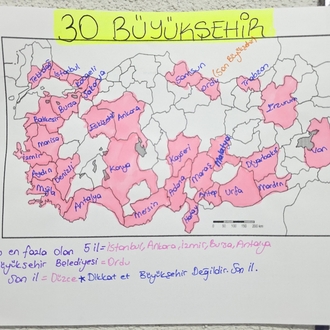 30 BÜYÜKŞEHİR
(Son Büyükşehir)
Tekirdağ
İstanbul
Kocaeli
Sakarya
Samsun
Ordu
Trabzon
Bursa
Balıkesir
Eskişehir
Ankara
Erzurum
Manisa
İzmir
Aydın
Denizli
Muğla
Antalya
Konya
Kayseri
Malatya
Maraş
Adana
Mersin
Hatay
Antep
Urfa
Diyarbakır
Mardin
Van
en fazla olan 5 il = İstanbul, Ankara, İzmir, Bursa, Antalya
üyükşehir Belediyesi = Ordu
Son il = Düzce * Dikkat et Büyükşehir Değildir. Son il.